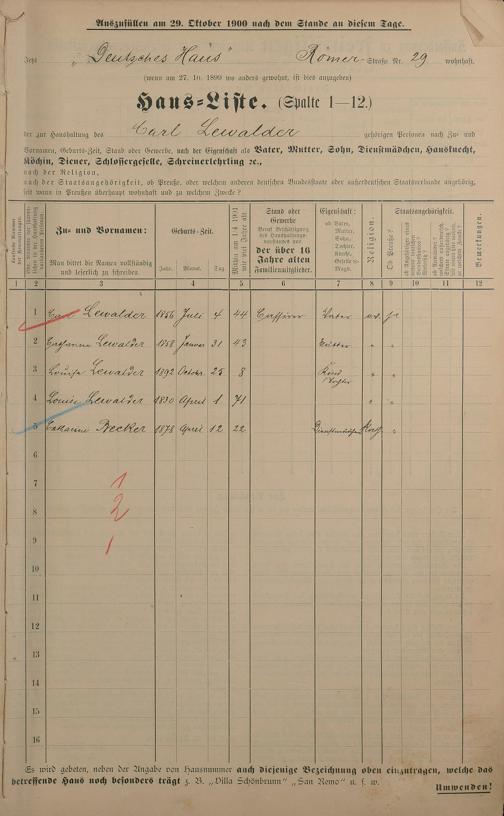 Auszufüllen am 29. Oktober 1900 nach dem Stande an diesem Tage.
Jetzt „Deutsches Haus" Römer-Straße Nr. 29 wohnhaft.
(wenn am 27. 10. 1899 wo anders gewohnt, ist dies anzugeben)
Haus-Liste. (Spalte 1—12.)
der zur Haushaltung des Carl Lewalder gehörigen Personen nach Zu- und
Vornamen, Geburts-Zeit, Stand oder Gewerbe, nach der Eigenschaft als Vater, Mutter, Sohn, Dienstmädchen, Hausknecht,
Köchin, Diener, Schlossergeselle, Schreinerlehrling ꝛc.,
nach der Religion,
nach der Staatsangehörigkeit, ob Preuße, oder welchem anderen deutschen Bundesstaat oder außerdeutschen Staatsverbande angehörig,
seit wann in Preußen überhaupt wohnhaft und zu welchem Zwecke?
Zu- und Vornamen:
Man bittet die Namen vollständig
und leserlich zu schreiben.
Geburts-Zeit.
Jahr. Monat. Tag.
Mithin am 1/4 1901
wie viel Jahre alt
Stand oder
Gewerbe
der über 16
Jahre alten
Familienmitglieder.
Eigenschaft:
ob Vater,
Mutter,
Sohn,
Tochter,
Knecht,
Geselle
Magd.
Religion.
Staatsangehörigkeit.
Ob Preuße?
Bemerkungen.
1 2 3 4 5 6 7 8 9 10 11 12
1 Carl Lewalder 1856 Juli 4 44 Vater ev. pr
2 Catharina Lewalder 1858 Januar 31 43 Mutter " "
3 Louise Lewalder 1892 Octobr. 25 8 Kind " "
Tochter
4 Louise Lewalder 1830 April 1 71 " "
5 Catharine Becker 1878 April 12 22 Dienstmädchen Kath. "
6
7 1
8 2
9 1
10
11
12
13
14
15
16
Es wird gebeten, neben der Angabe von Hausnummer auch diejenige Bezeichnung oben einzutragen, welche das
betreffende Haus noch besonders trägt z. B. „Villa Schönbrunn" „San Remo" u. s. w.
Umwenden!